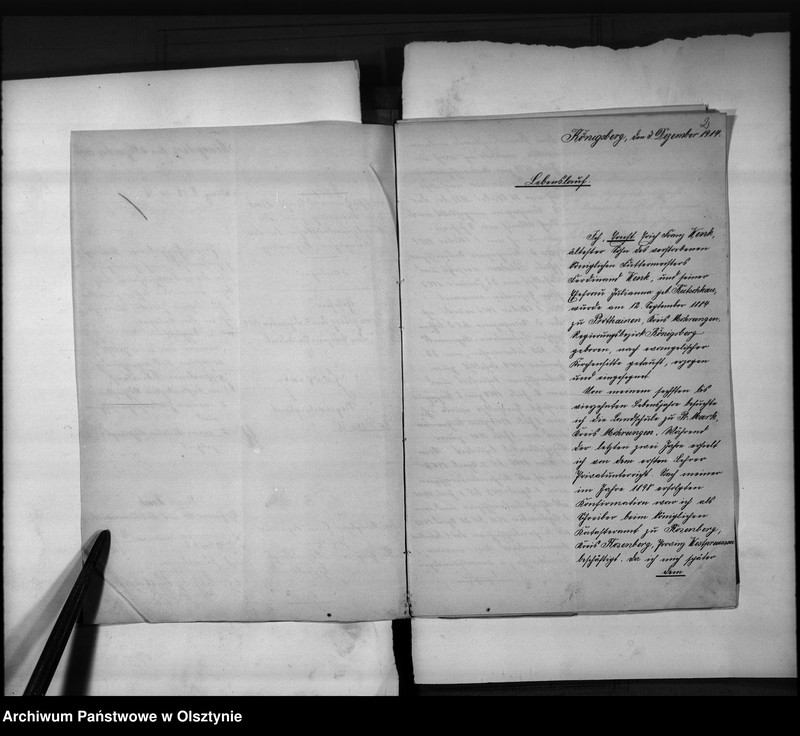 2
Königsberg, den 3 Dezember 1914.
Lebenslauf.
Ich, Erich Franz Wenk,
ältester Sohn des verstorbenen
Königlichen Futtermeisters
Ferdinand Wenk, und seiner
Ehefrau Julianna geb.
wurde am 12. September 1884
zu Porthainen, Kreis Mohrungen,
Regierungsbezirk Königsberg
geboren, nach evangelischer
Kirchensitte getauft, erzogen
und eingesegnet.
Von meinem sechsten bis
vierzehnten Lebensjahre besuchte
ich die Landschule zu Pr. Mark,
Kreis Mohrungen. Während
der letzten zwei Jahre erhielt
ich von dem ersten Lehrer
Privatunterricht. Nach meiner
im Jahre 1898 erfolgten
Konfirmation war ich als
Schreiber beim Königlichen
Katasteramt zu Rosenberg,
Kreis Rosenberg, Provinz Westpreussen
beschäftigt. Da ich mich später
dem
Archiwum Państwowe w Olsztynie